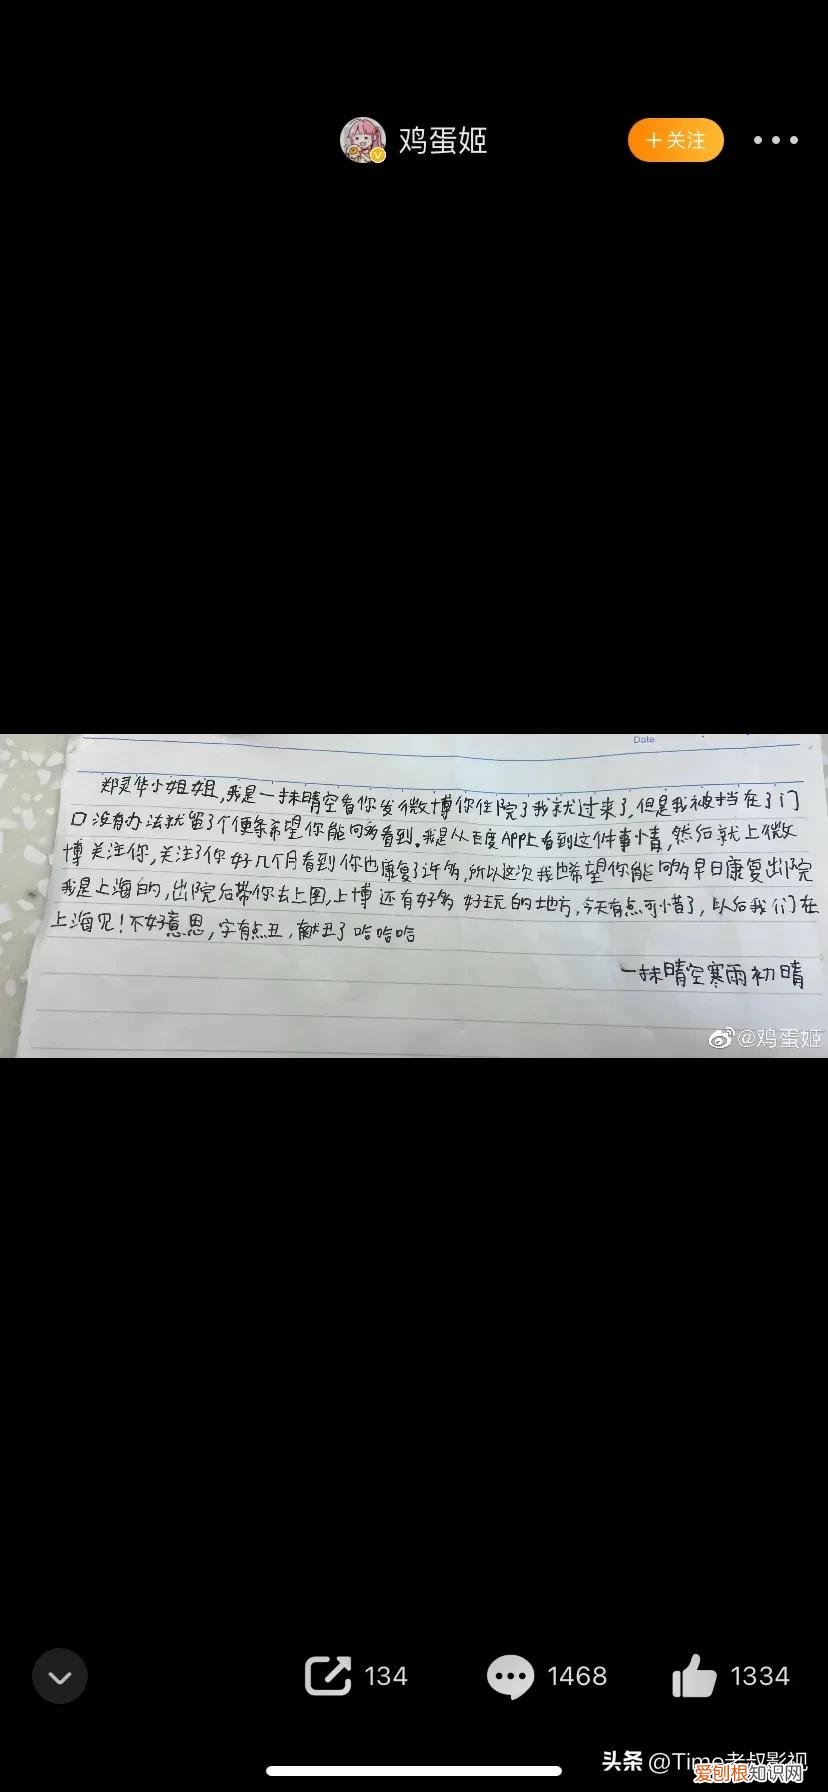 鸡蛋姬
+关注
Date
郑灵华小姐姐,我是一抹晴空看你发微博你住院了我就过来了,但是我被挡在了门
口没有办法就留了个便条希望你能够看到。我是从百度APP上看到这件事情,然后就上微
博关注你,关注了你好几个月看到你也康复了许多,所以这次我也希望你能够早日康复出院
我是上海的,出院后带你去上图,上博还有好多好玩的地方,今天有点可惜了,以后我们在
上海见!不好意思,字有点丑,献丑了哈哈哈
一抹晴空寒雨初晴
@鸡蛋姬
134
1468
1334
头条 @Time老叔影视
爱刨根知识网